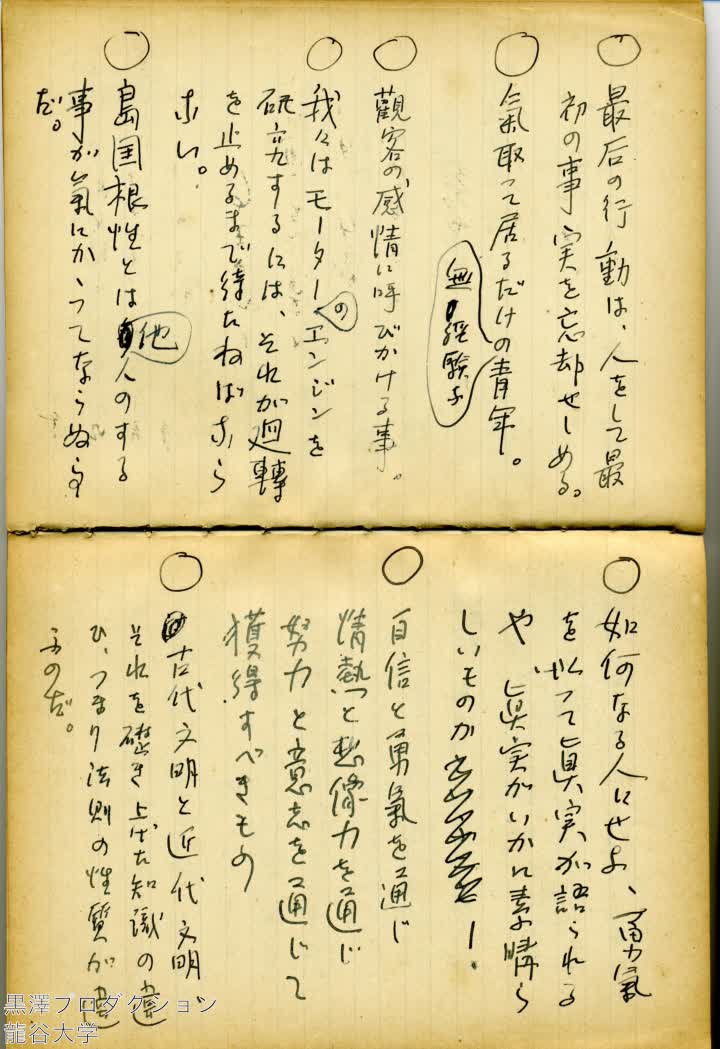 ○ 最后の行動は、人をして最
初の事実を忘却せしめる。
○ 氣取って居るだけの青年。
無経験な
○ 觀客の感情に呼びかける事。
○ 我々はモーターのエンジンを
研究するには、それが廻轉
を止めるまで待たねばなら
ない。
○ 島国根性とは他人のする
事が氣にかゝってならぬ
だ。
○ 如何なる人にせよ、勇氣
を以って眞実が語られる
や、眞実がいかに素晴ら
しいものか ー.
○ 自信と勇氣を通じ
情熱と想像力を通じ
努力と意志を通じて
獲得すべきもの
○ 古代文明と近代文明
それを築き上げた知識の違
ひ、つまり法則の性質が違
ふのだ。
黒澤プロダクション
龍谷大学